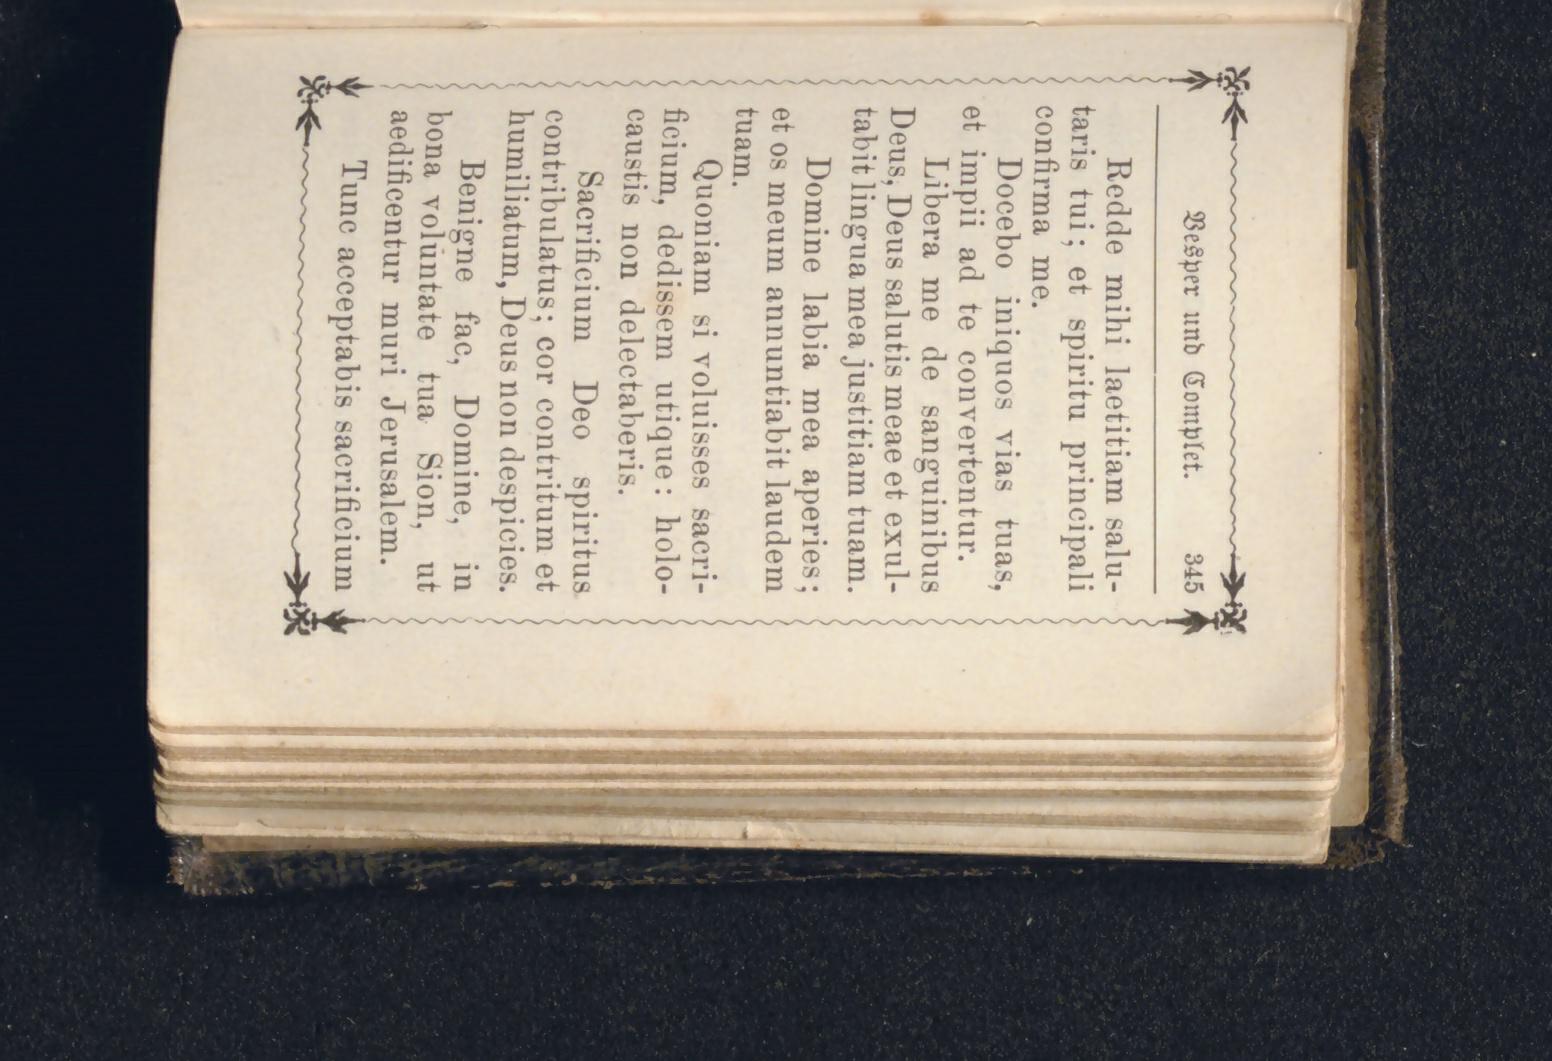 Vesper und Complet. 345
Redde mihi laetitiam salu-
taris tui; et spiritu principali
confirma me.
Docebo iniquos vias tuas,
et impii ad te convertentur.
Libera me de sanguinibus
Deus, Deus salutis meae et exul-
tabit lingua mea justitiam tuam.
Domine labia mea aperies;
et os meum annuntiabit laudem
tuam.
Quoniam si voluisses sacri-
ficium, dedissem utique: holo-
caustis non delectaberis.
Sacrificium Deo spiritus
contribulatus; cor contritum et
humiliatum, Deus non despicies.
Benigne fac, Domine, in
bona voluntate tua Sion, ut
aedificentur muri Jerusalem.
Tunc acceptabis sacrificium